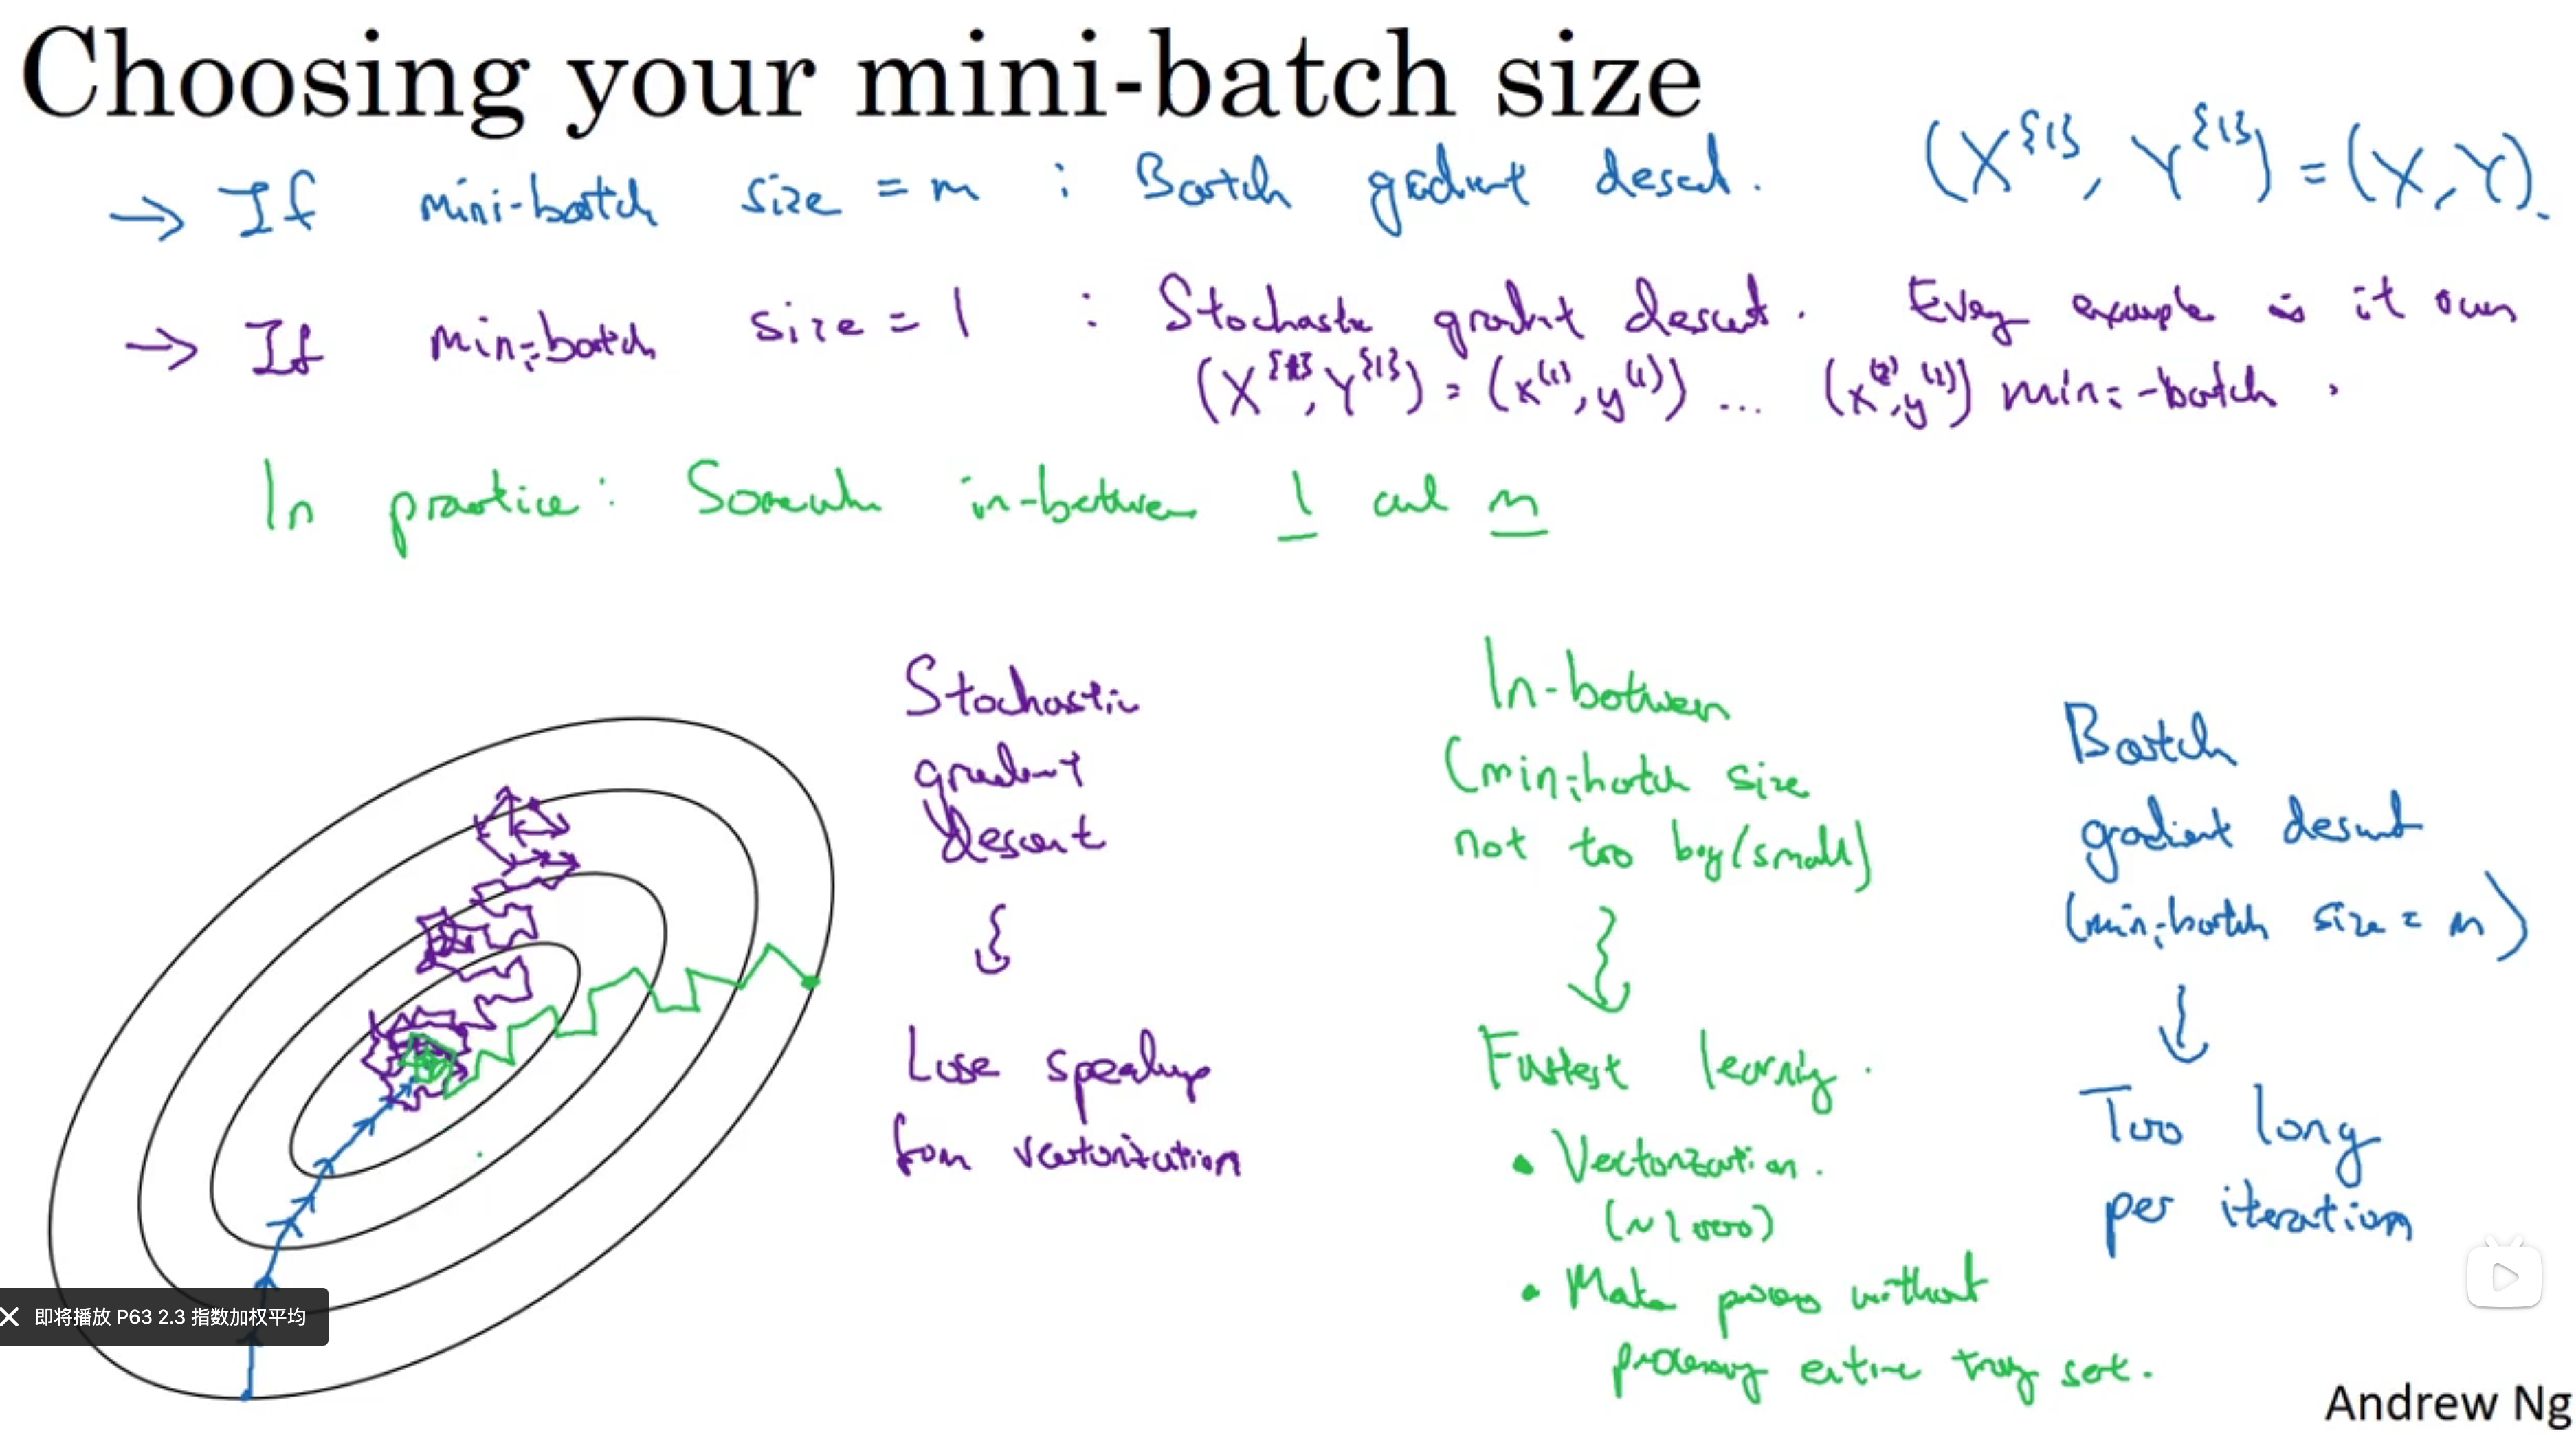 Choosing your mini-batch size
→ If mini-batch size = m : Batch gradient descent. (X^{1}, Y^{1}) = (X, Y).
→ If mini-batch size = 1 : Stochastic gradient descent. Every example is it own
(X^{1}, Y^{1}) = (x^(1), y^(1)) ... (x^(2), y^(2)) mini-batch.
In practice: Somewhere in-between 1 and m
Stochastic
gradient
descent
Lose speedup
from vectorization
In-between
(mini-batch size
not too big/small)
Fastest learning.
• Vectorization.
(~1000)
• Make progress without
processing entire training set.
Batch
gradient descent
(mini-batch size = m)
Too long
per iteration
即将播放 P63 2.3 指数加权平均
Andrew Ng